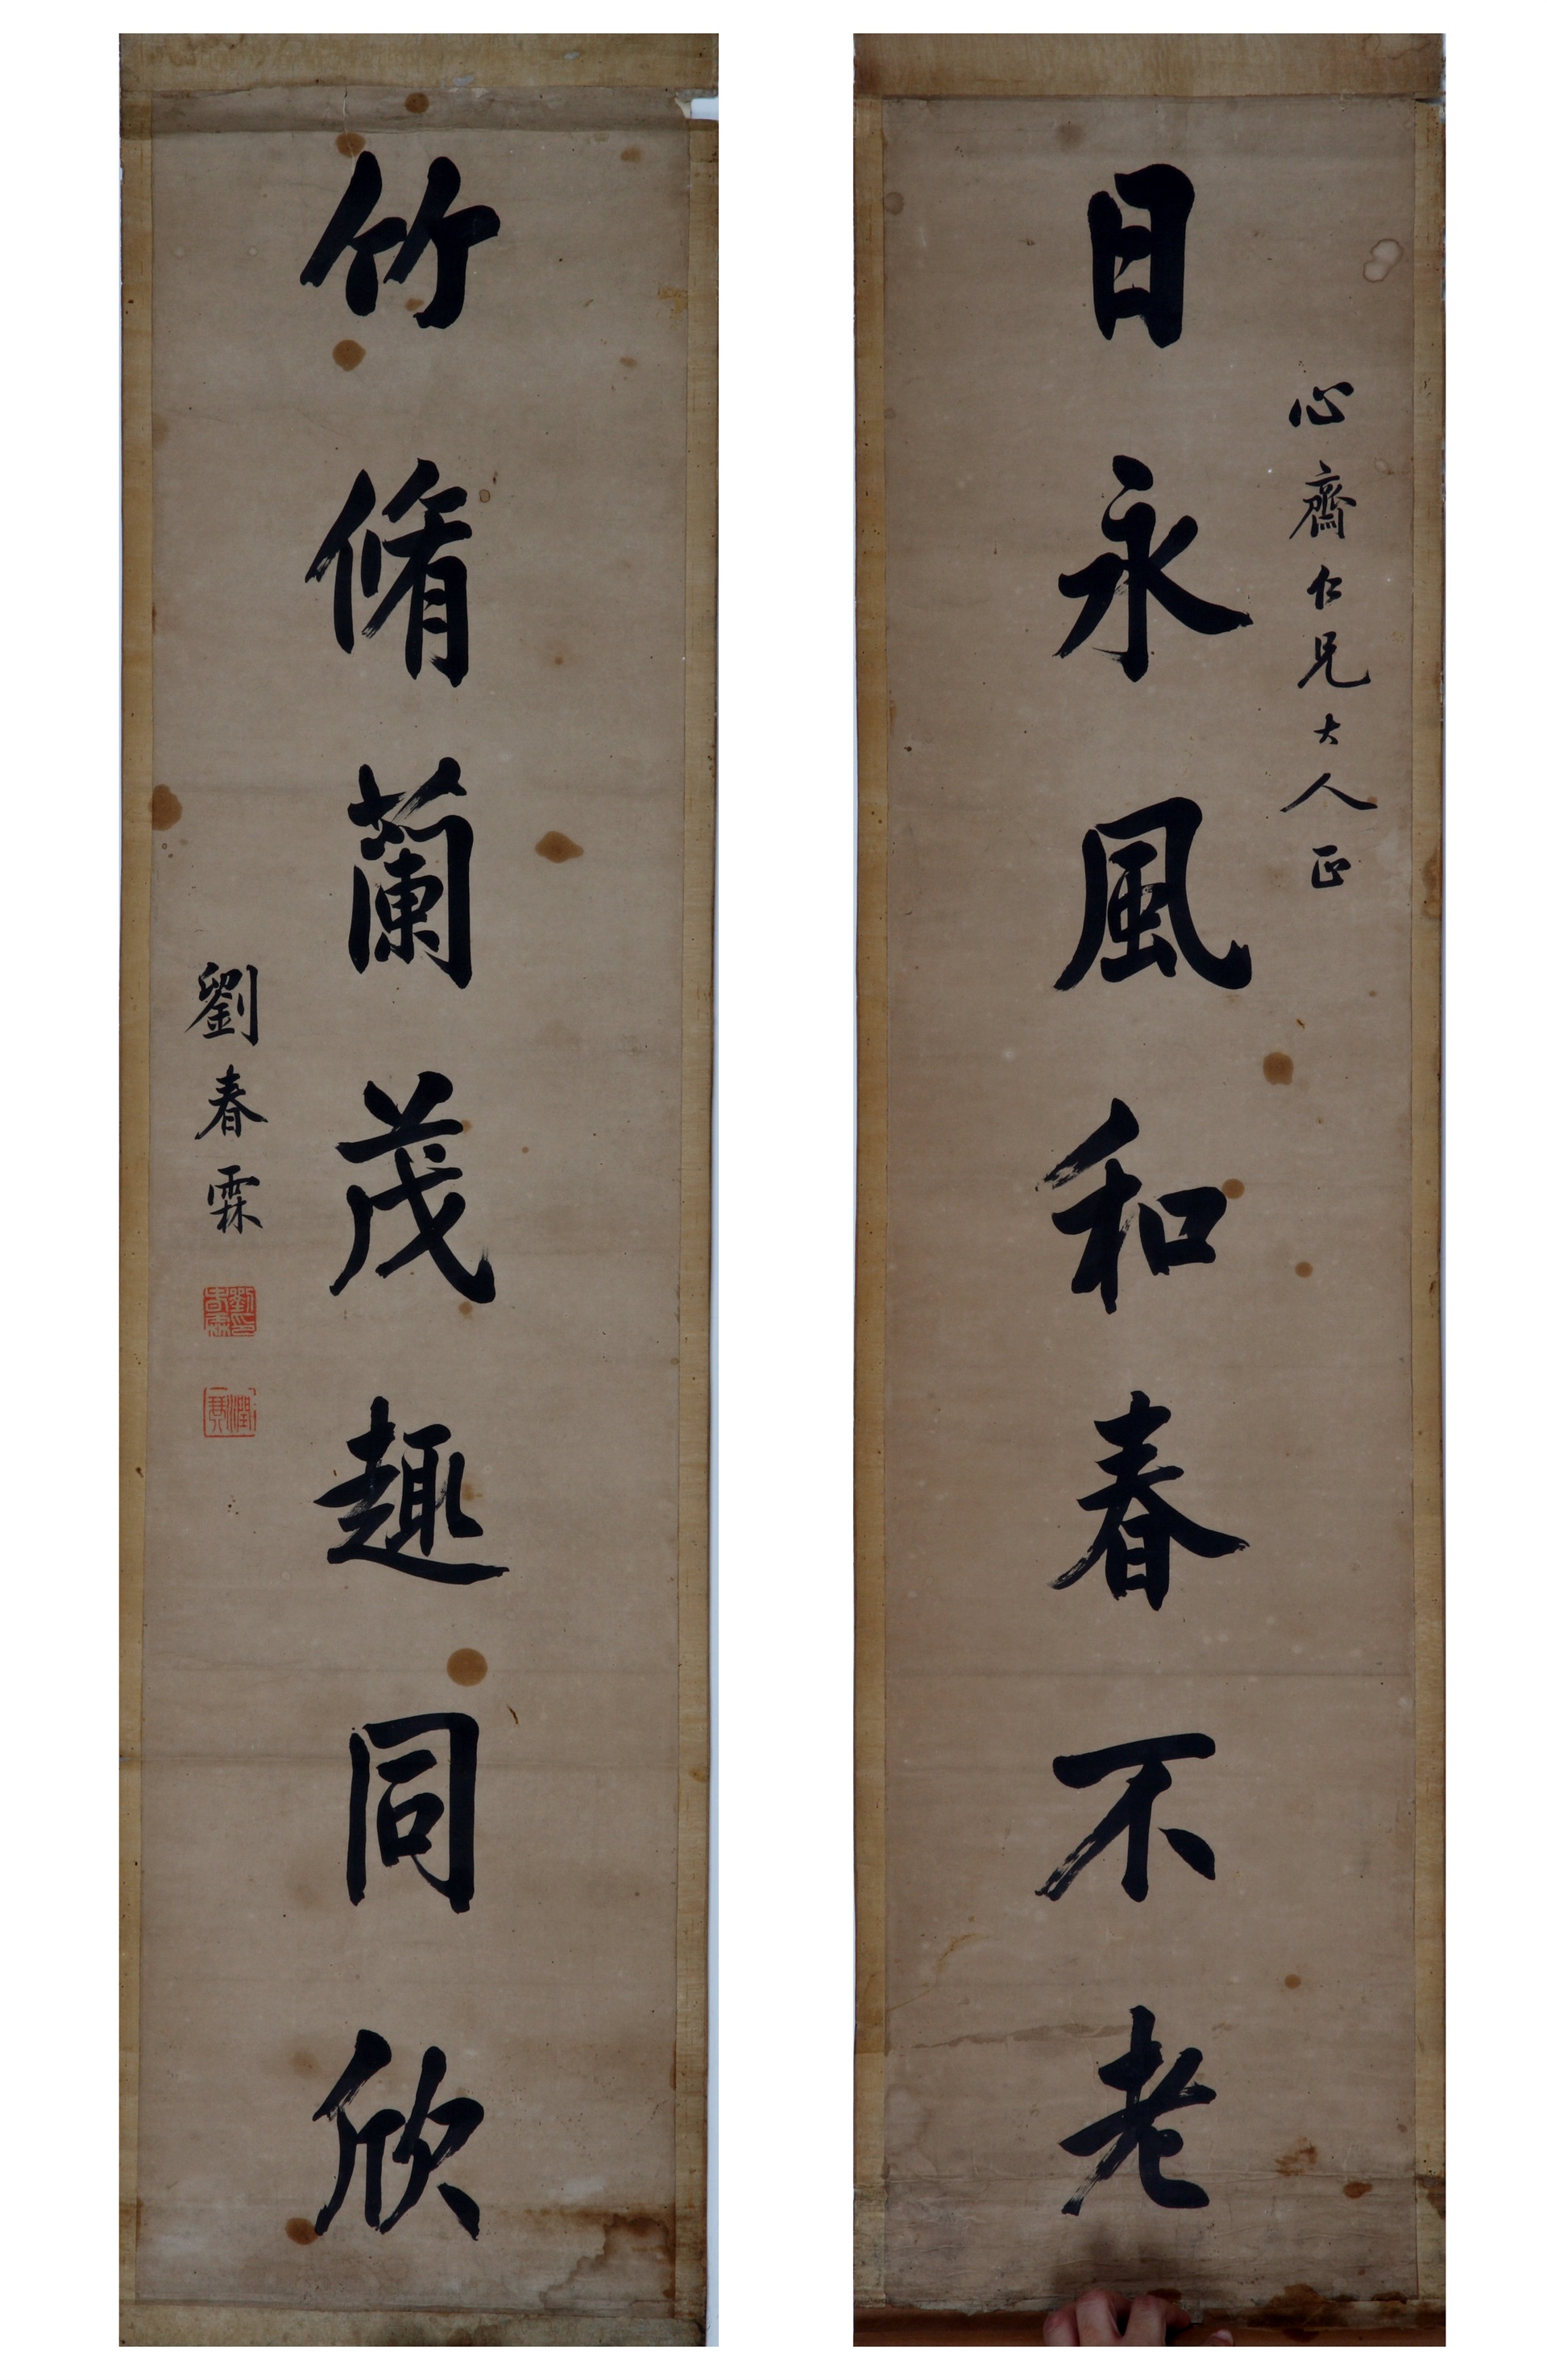 心齋仁兄大人正
日永風和春不老
竹脩蘭茂趣同欣
劉春霖
劉春霖印
潤琴